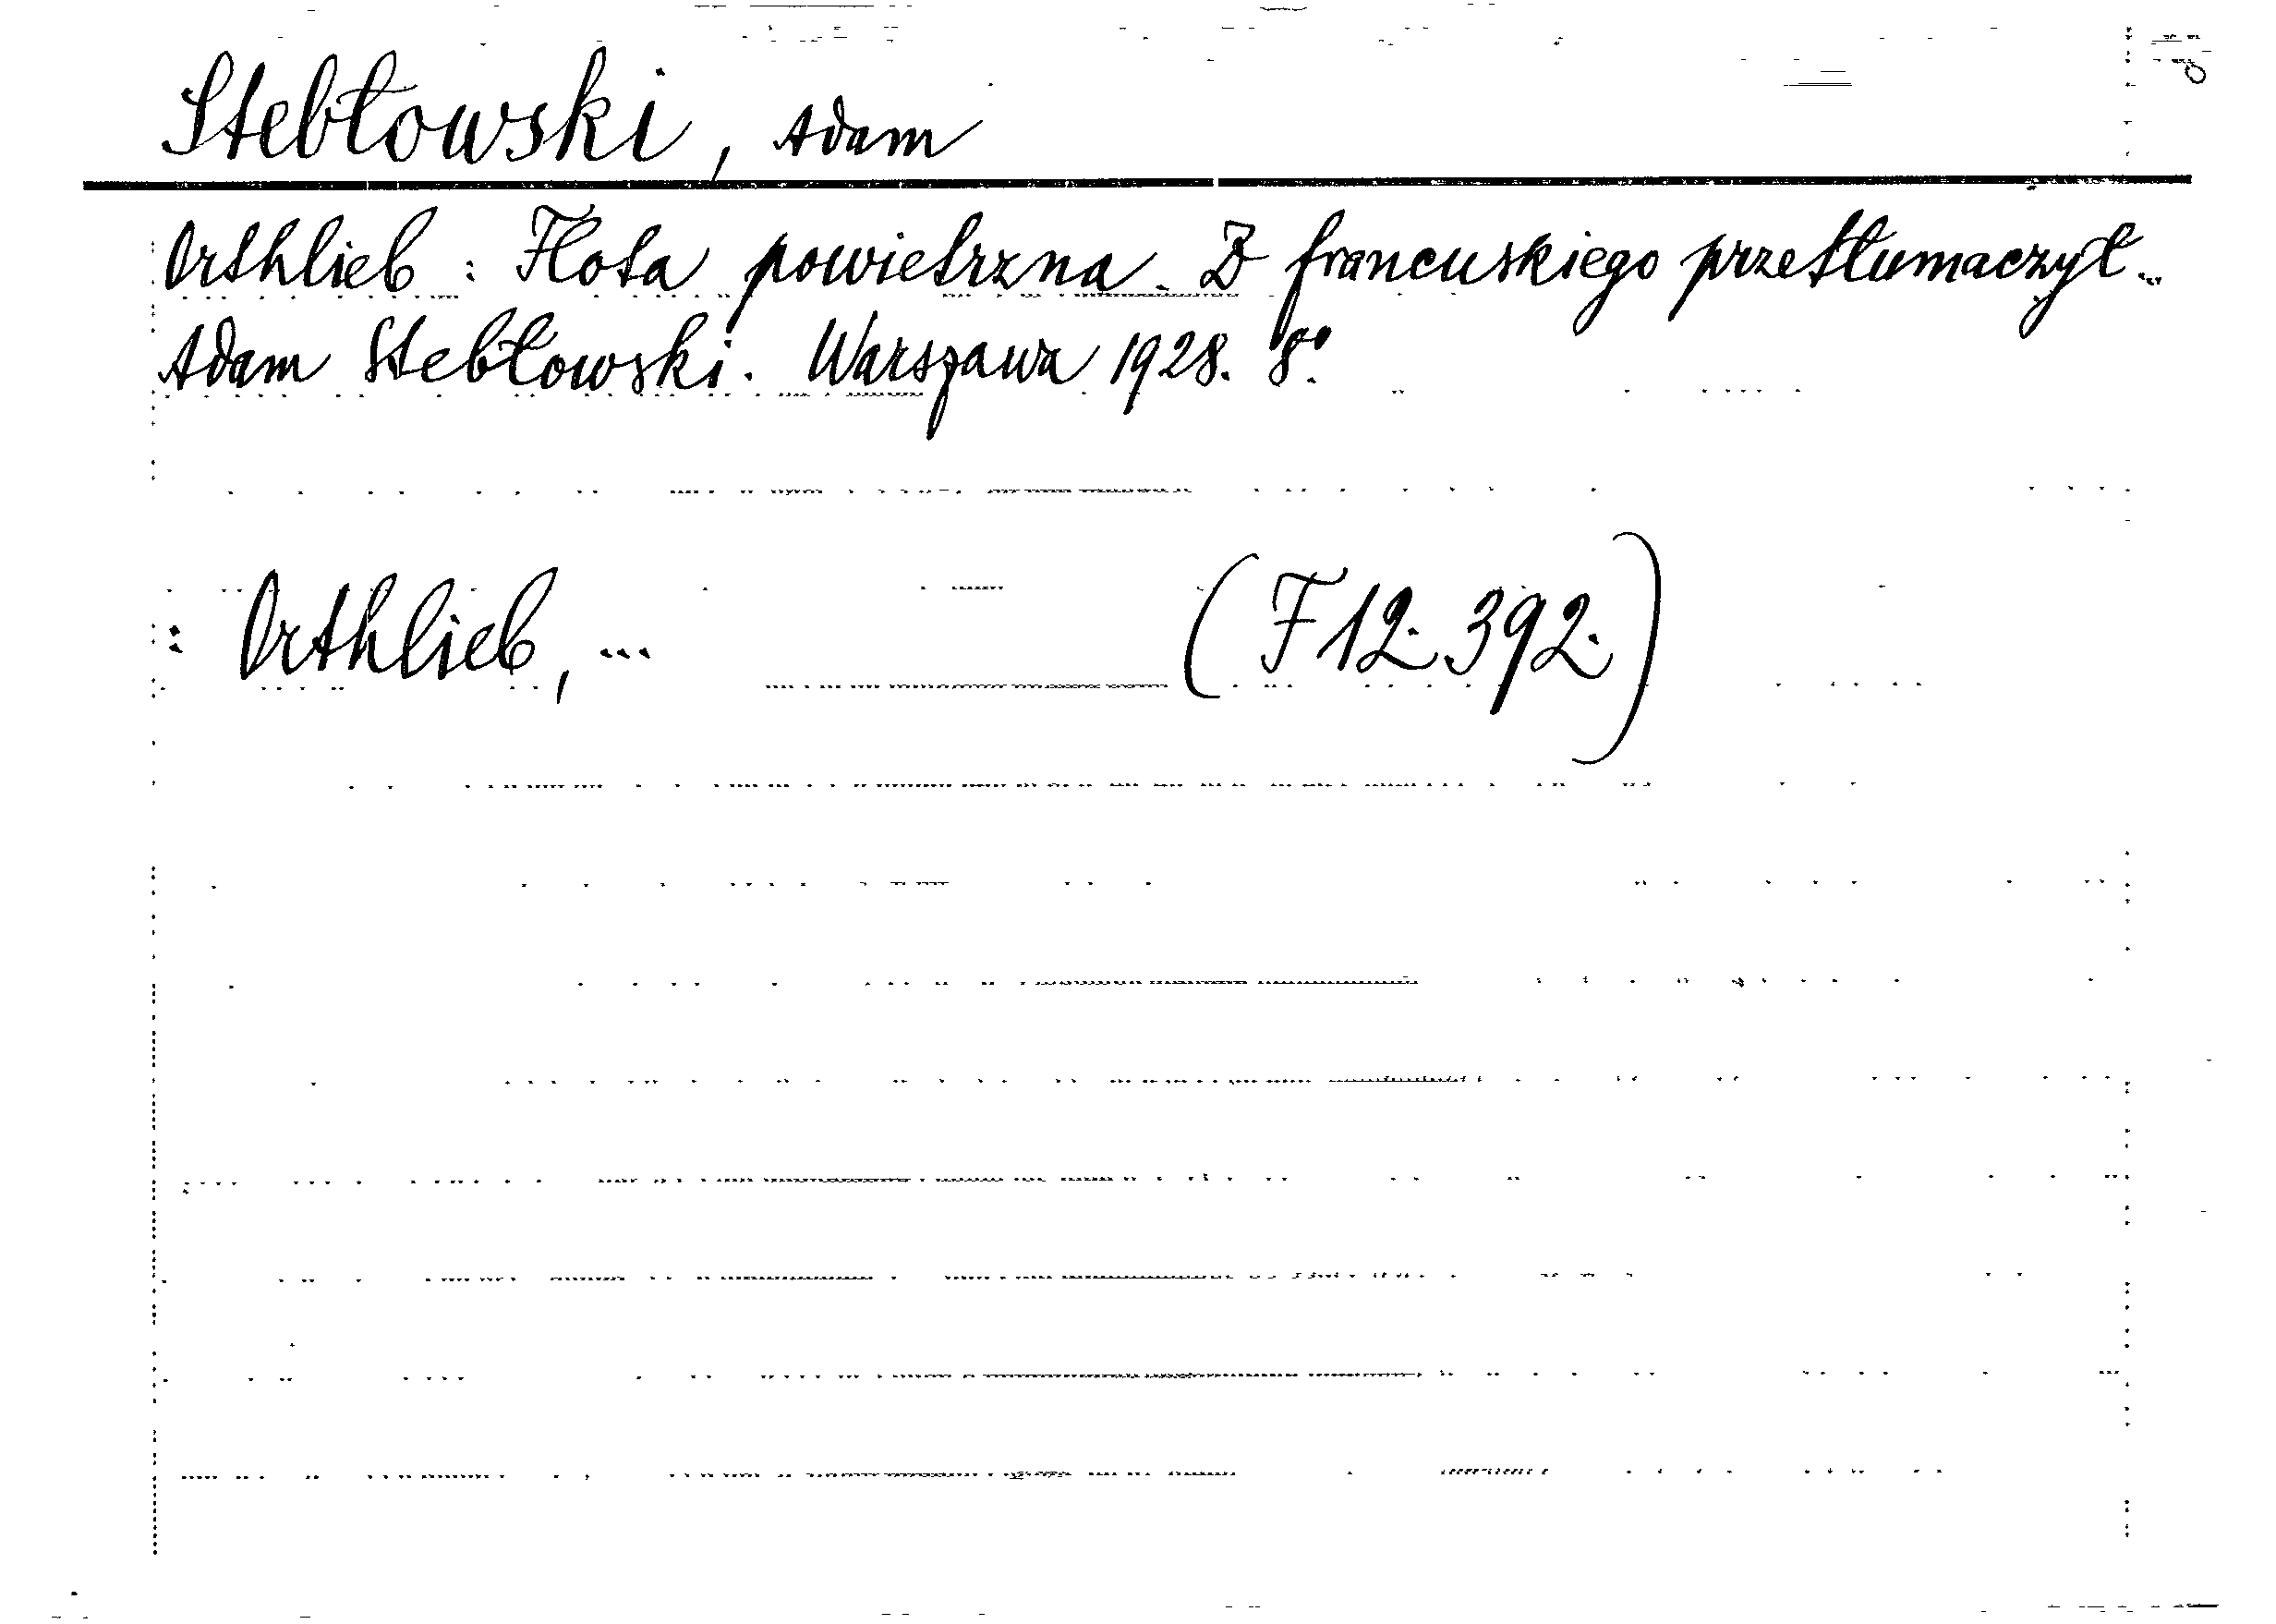 Stebłowski, Adam
Orthlieb: Flota powietrzna. Z francuskiego przetłumaczył...
Adam Stebłowski. Warszawa 1928. 8°.
: Orthlieb, ... (F 12.392.)